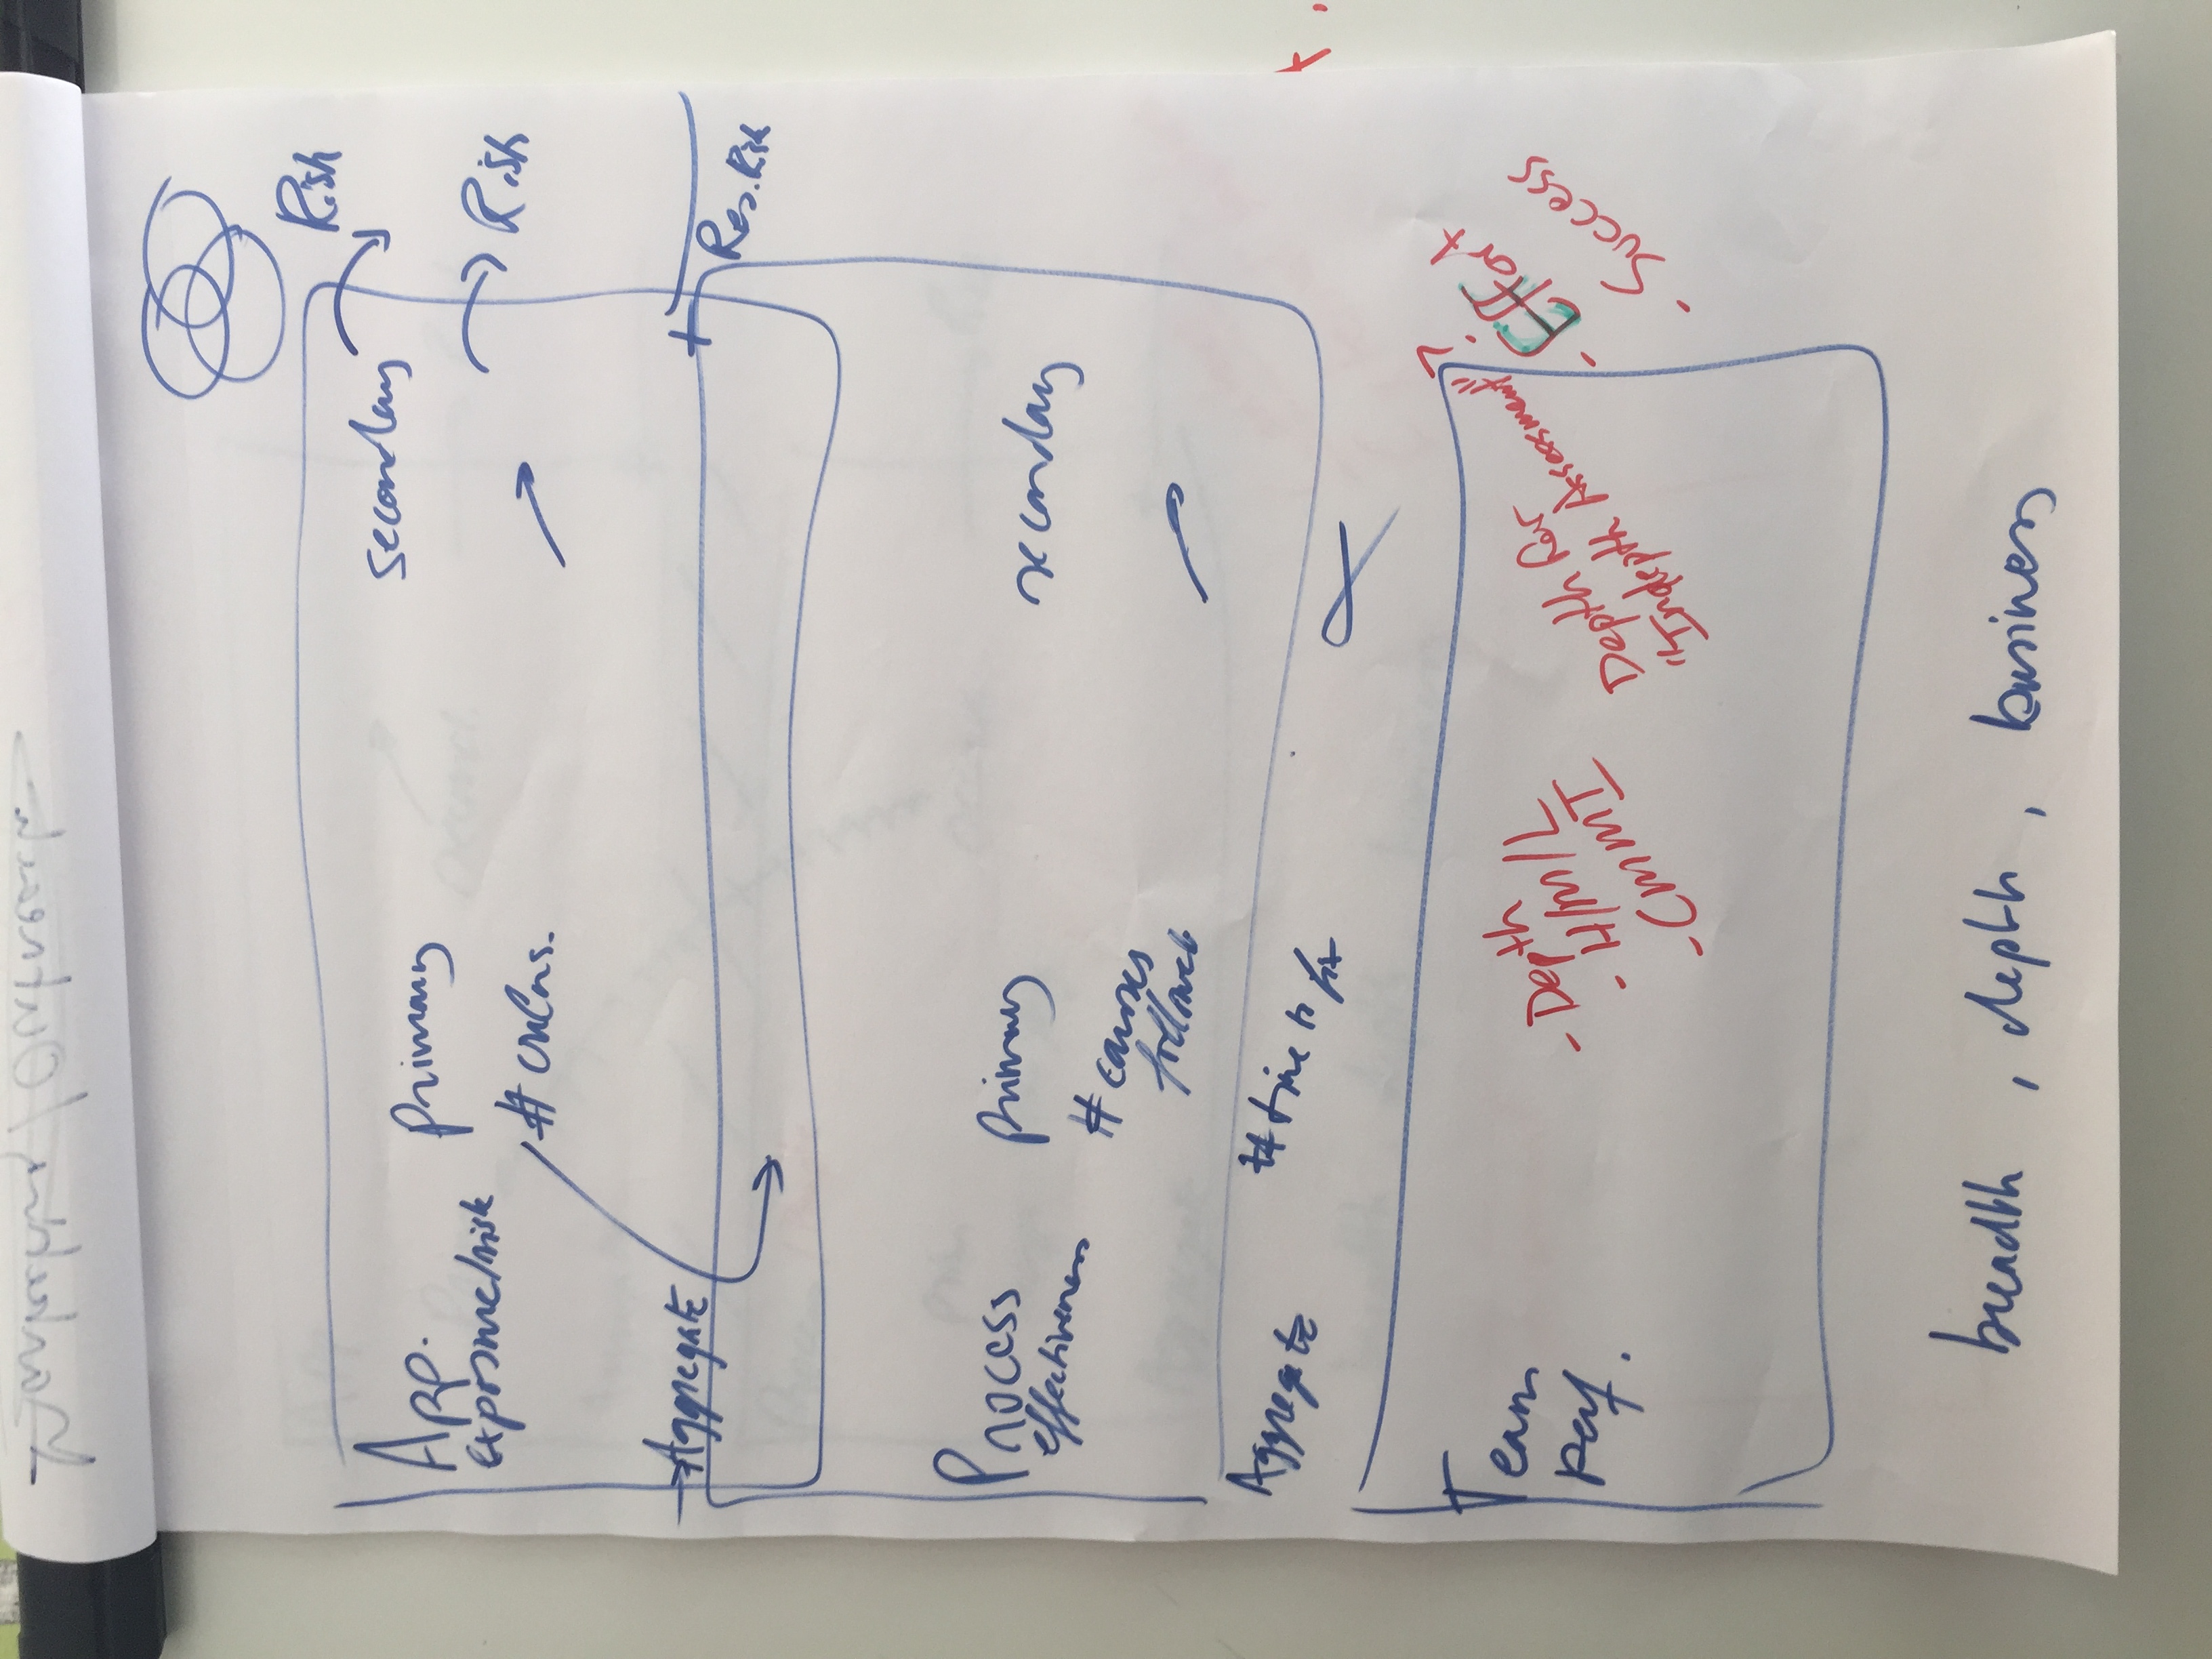 Marketing/Outreach
Risk
App.
exposure/risk
primary
secondary
# vulns.
Risk
Aggregate
Res. Risk
Process
effectiveness
primary
secondary
# courses
followed
Aggregate
# time to fix
Team
perf.
- Depth
- H/M/L
- CMMI
Depth for
"Indepth Assessment"?
- Effort
- Success
breadth, depth, business